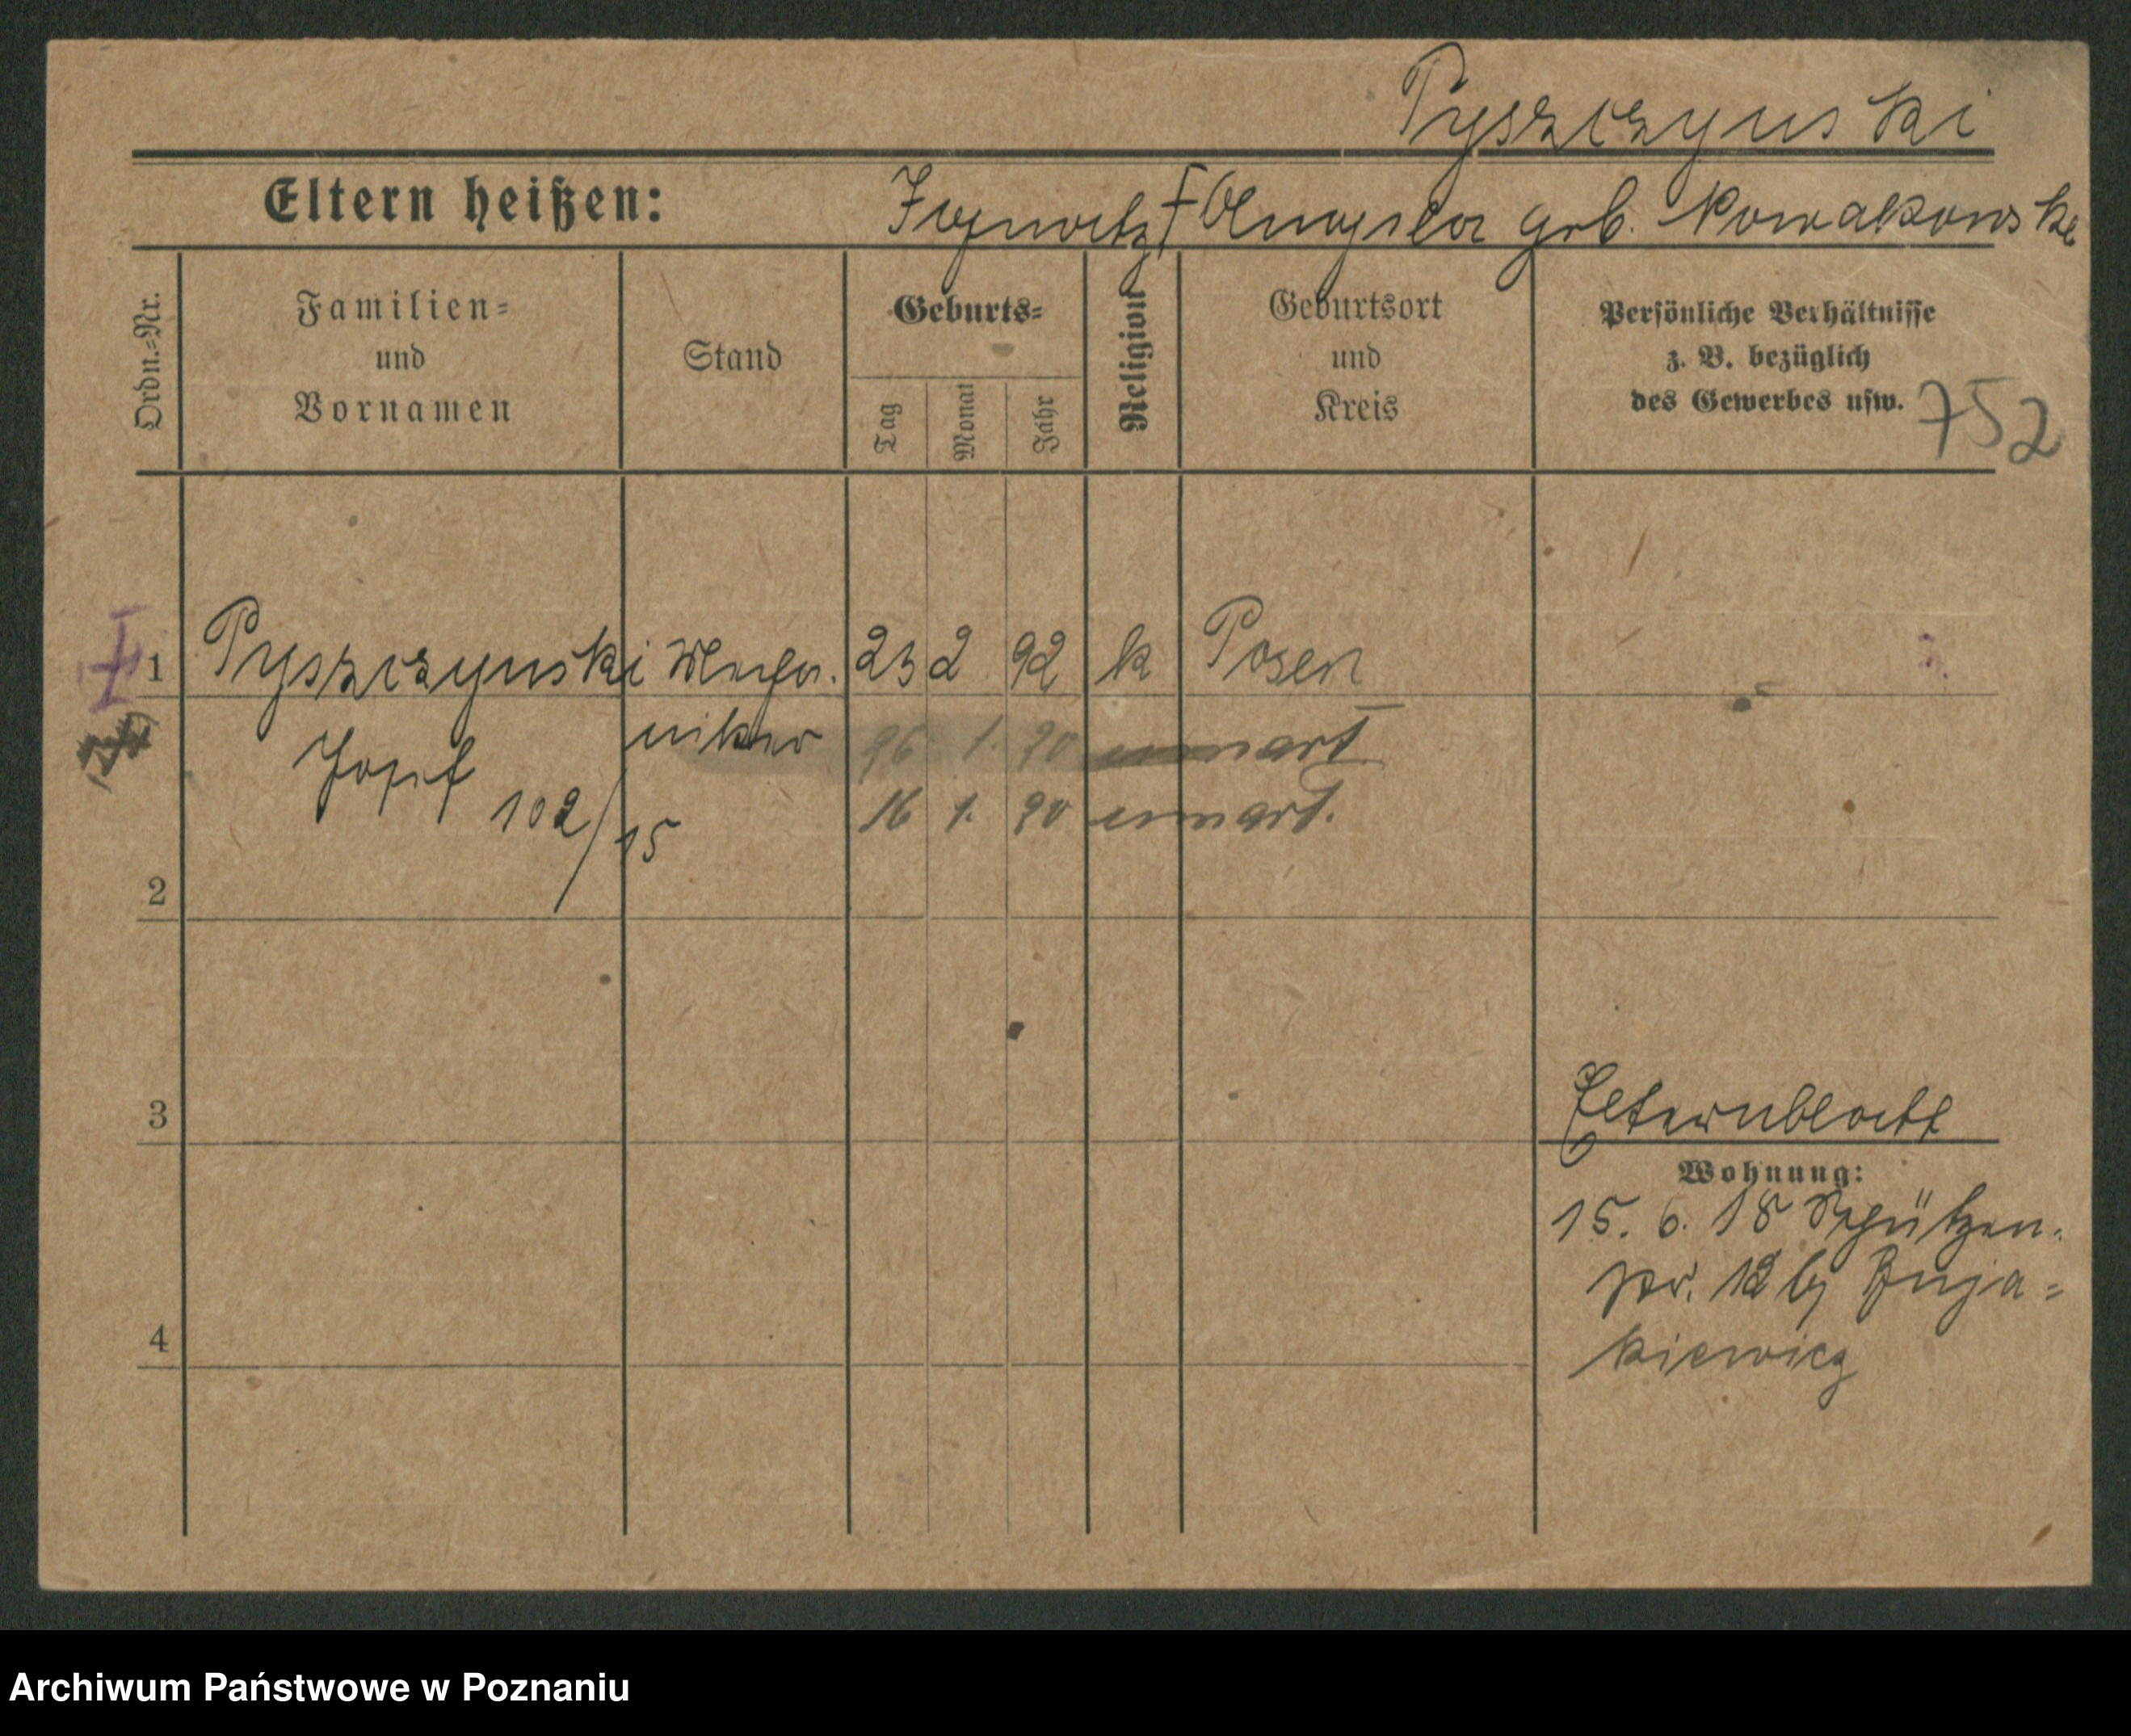 Pyszczynski
Eltern heißen: Ignatz † geb. Nowakowski
Ordn.=Nr.
Familien=
und
Vornamen
Stand
Geburts=
Tag
Monat
Jahr
Religion
Geburtsort
und
Kreis
Persönliche Verhältnisse
z. B. bezüglich
des Gewerbes usw.
752
1 Pyszczynski Mecha. 23 2 92 k Posen
Josef niker 26 1. 20 ermart
102/15 16 1. 20 ermart.
2
3 Elternblatt
Wohnung:
15. 6. 18 Schützen.
str. 12 bj Buja=
4 kiewicz
Archiwum Państwowe w Poznaniu